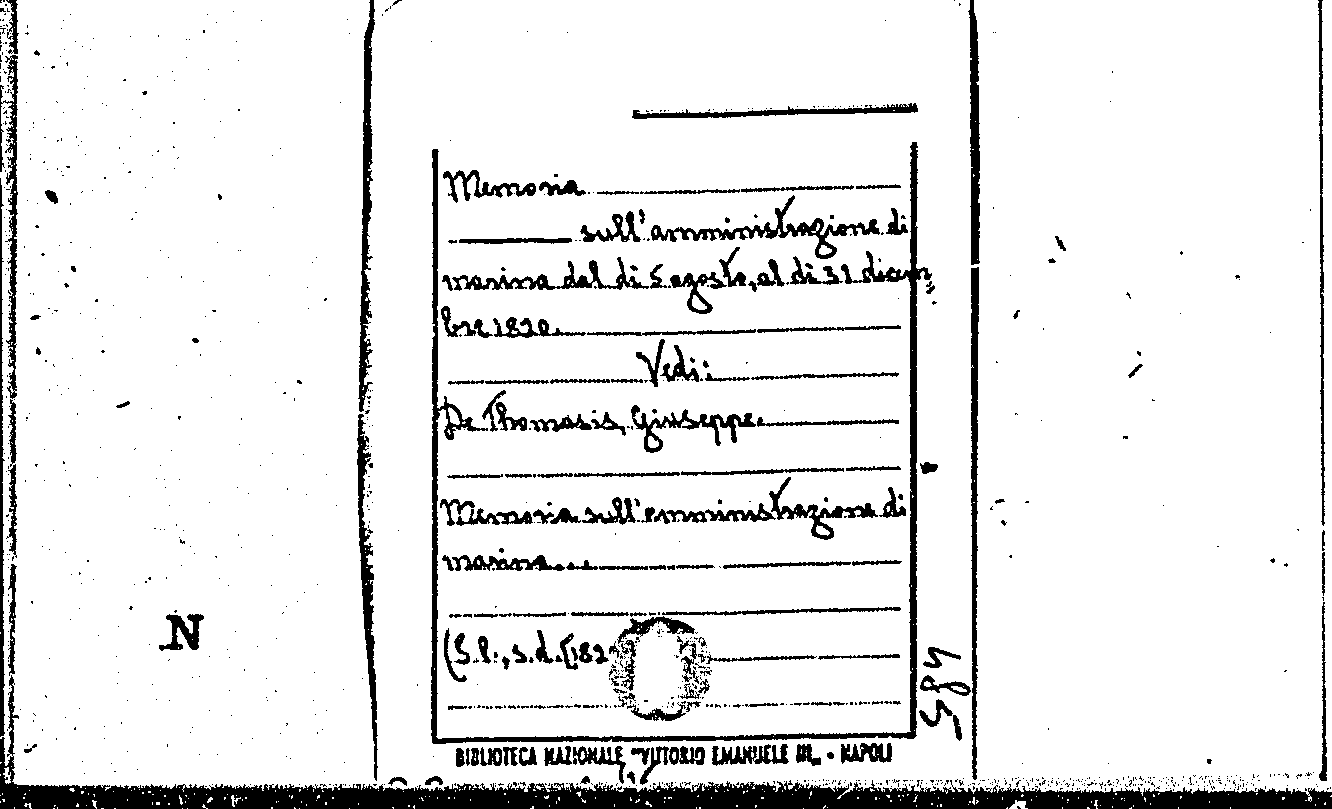 Memoria
sull'amministrazione di
marina dal di 5 agosto, al di 31 dicem
bre 1820.
Vedi:
De Thomasis, Giuseppe.
Memoria sull'amministrazione di
marina...
(S.l., s.d. [182
N
584
BIBLIOTECA NAZIONALE "VITTORIO EMANUELE III„ - NAPOLI